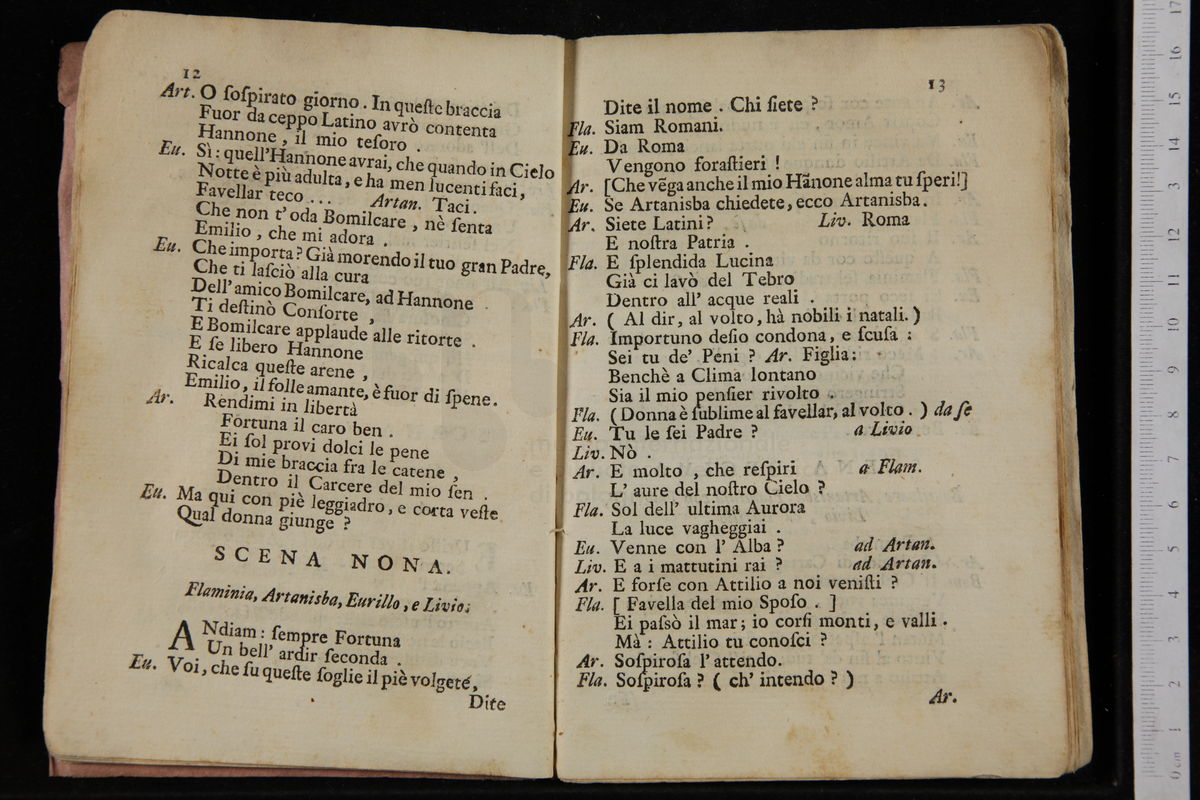 12
Art. O ſoſpirato giorno. In queſte braccia
Fuor da ceppo Latino avrò contenta
Hannone, il mio teſoro.
Eu. Sì: quell'Hannone avrai, che quando in Cielo
Notte è più adulta, e ha men lucenti faci,
Favellar teco... Artan. Taci.
Che non t'oda Bomilcare, nè ſenta
Emilio, che mi adora.
Eu. Che importa? Già morendo il tuo gran Padre,
Che ti laſciò alla cura
Dell'amico Bomilcare, ad Hannone
Ti deſtinò Conſorte,
E Bomilcare applaude alle ritorte.
E ſe libero Hannone
Ricalca queſte arene,
Emilio, il folle amante, è fuor di ſpene.
Ar. Rendimi in libertà
Fortuna il caro ben.
Ei ſol provi dolci le pene
Di mie braccia fra le catene,
Dentro il Carcere del mio ſen.
Eu. Ma qui con piè leggiadro, e corta veſte
Qual donna giunge?
SCENA NONA.
Flaminia, Artanisba, Eurillo, e Livio.
ANdiam: ſempre Fortuna
Un bell' ardir ſeconda.
Eu. Voi, che ſu queſte ſoglie il piè volgete,
Dite
13
Dite il nome. Chi ſiete?
Fla. Siam Romani.
Eu. Da Roma
Vengono foraſtieri!
Ar. [Che vẽga anche il mio Hãnone alma tu ſperi!]
Eu. Se Artanisba chiedete, ecco Artanisba.
Ar. Siete Latini? Liv. Roma
E noſtra Patria.
Fla. E ſplendida Lucina
Già ci lavò del Tebro
Dentro all' acque reali.
Ar. (Al dir, al volto, hà nobili i natali.)
Fla. Importuno deſio condona, e ſcuſa:
Sei tu de' Peni? Ar. Figlia:
Benchè a Clima lontano
Sia il mio penſier rivolto.
Fla. (Donna è ſublime al favellar, al volto.) da ſe
Eu. Tu le ſei Padre? a Livio
Liv. Nò.
Ar. E molto, che reſpiri a Flam.
L' aure del noſtro Cielo?
Fla. Sol dell' ultima Aurora
La luce vagheggiai.
Eu. Venne con l' Alba? ad Artan.
Liv. E a i mattutini rai? ad Artan.
Ar. E forſe con Attilio a noi veniſti?
Fla. [Favella del mio Spoſo.]
Ei paſsò il mar; io corſi monti, e valli.
Mà: Attilio tu conoſci?
Ar. Soſpiroſa l' attendo.
Fla. Soſpiroſa? (ch' intendo?)
Ar.
17
16
15
14
13
12
11
10
9
8
7
6
5
4
3
2
1
0 cm